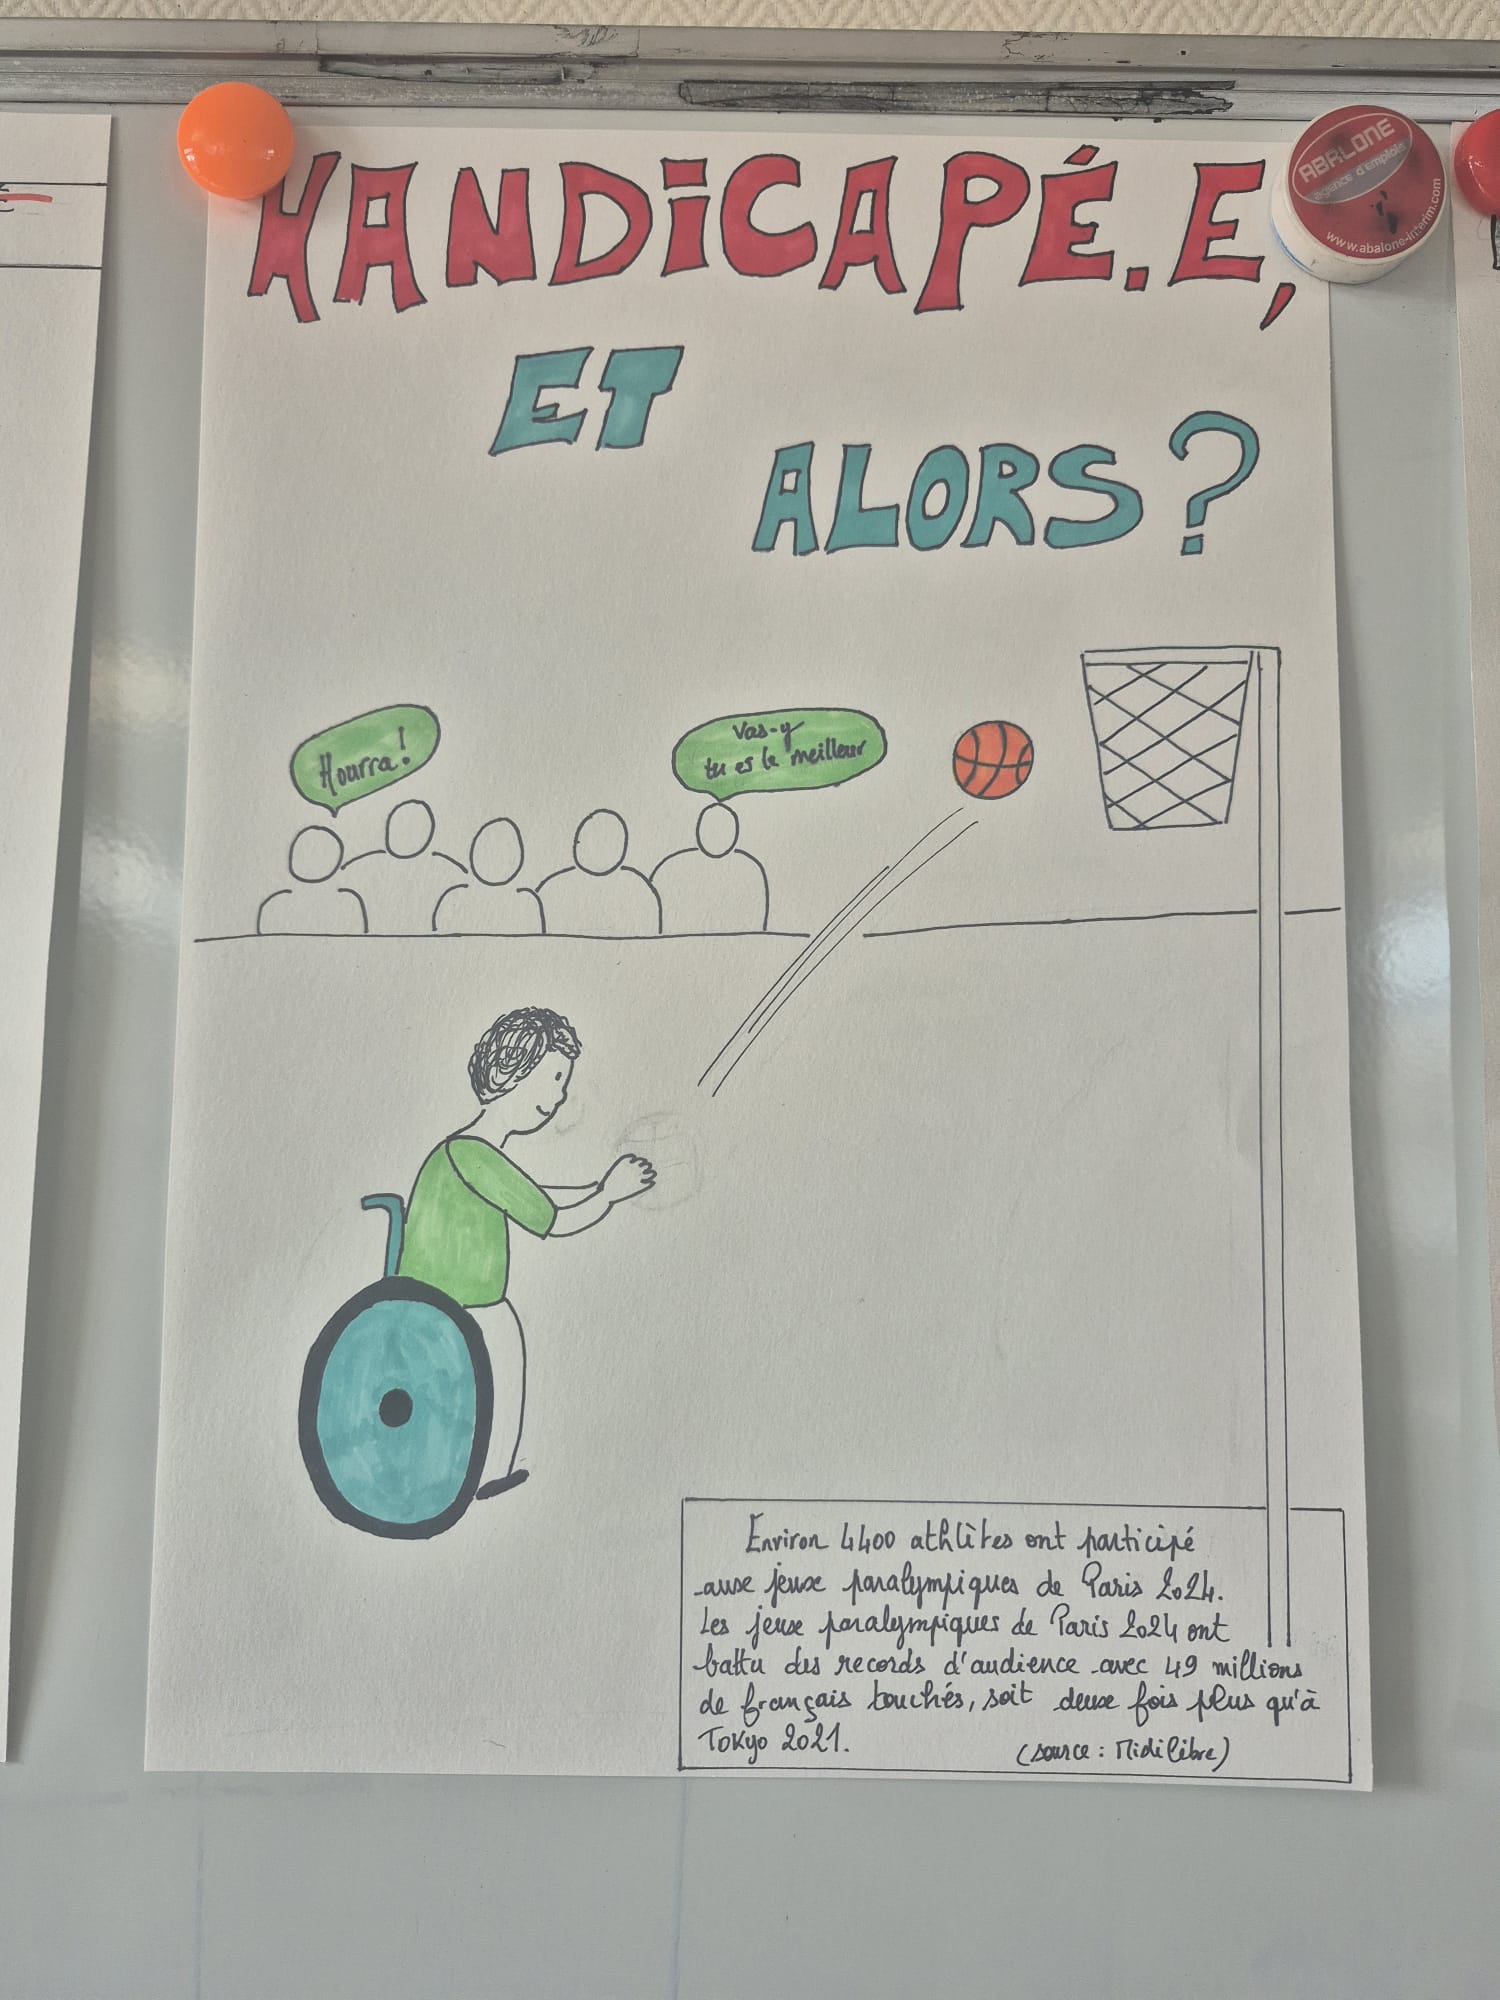 HANDICAPÉ.E,
ABALONE
agence d'emplois
www.abalone-interim.com
ET
ALORS ?
Hourra !
Vas-y
tu es le meilleur
Environ 4400 athlètes ont participé
aux jeux paralympiques de Paris 2024.
Les jeux paralympiques de Paris 2024 ont
battu des records d'audience avec 49 millions
de français touchés, soit deux fois plus qu'à
Tokyo 2021.
(source : Midi libre)